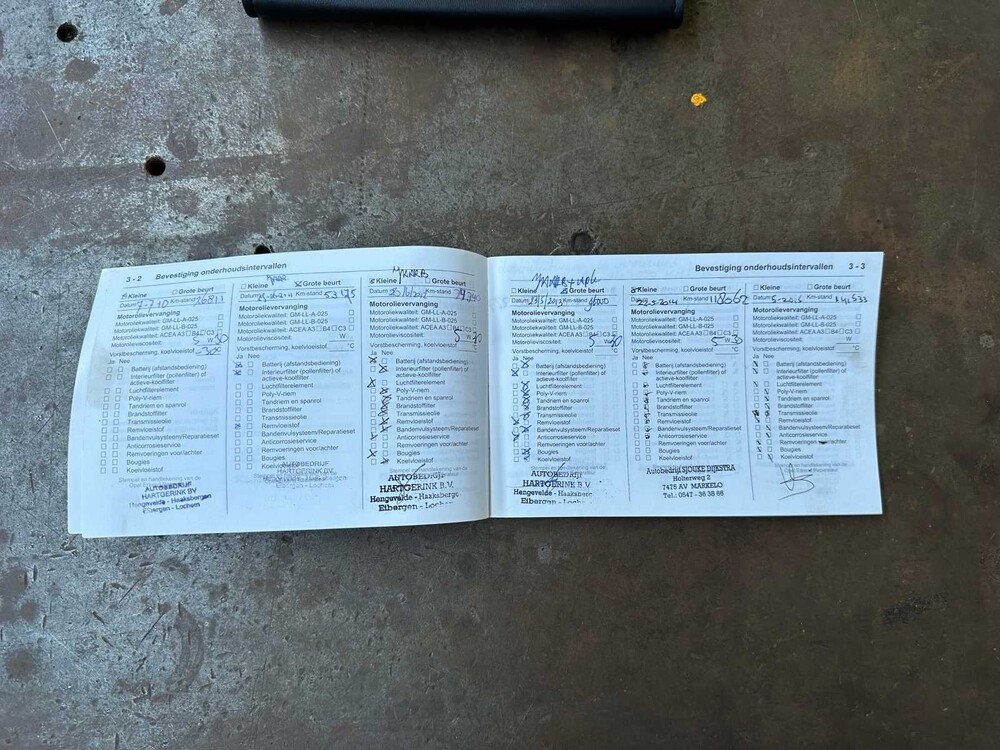 3 - 2 Bevestiging onderhoudsintervallen
Kleine Grote beurt
Datum Km-stand 26811
Motorolievervanging
Motoroliekwaliteit: GM-LL-A-025
Motoroliekwaliteit: GM-LL-B-025
Motoroliekwaliteit: ACEA A3 B4 C3
Motorolieviscositeit: 5 W 30
Vorstbescherming, koelvloeistof -30°C
Ja Nee
Batterij (afstandsbediening)
Interieurfilter (pollenfilter) of
actieve-koolfilter
Luchtfilterelement
Poly-V-riem
Tandriem en spanrol
Brandstoffilter
Transmissieolie
Remvloeistof
Bandenvulsysteem/Reparatieset
Anticorrosieservice
Remvoeringen voor/achter
Bougies
Koelvloeistof
AUTOBEDRIJF
HARTGERINK BV
Hengevelde - Haaksbergen
Eibergen - Lochem
Kleine Grote beurt
Datum Km-stand
Motorolievervanging
Motoroliekwaliteit: GM-LL-A-025
Motoroliekwaliteit: GM-LL-B-025
Motoroliekwaliteit: ACEA A3 B4 C3
Motorolieviscositeit: W
Vorstbescherming, koelvloeistof °C
Ja Nee
Batterij (afstandsbediening)
Interieurfilter (pollenfilter) of
actieve-koolfilter
Luchtfilterelement
Poly-V-riem
Tandriem en spanrol
Brandstoffilter
Transmissieolie
Remvloeistof
Bandenvulsysteem/Reparatieset
Anticorrosieservice
Remvoeringen voor/achter
Bougies
Koelvloeistof
AUTOBEDRIJF
HARTGERINK BV
Kleine Grote beurt
Datum Km-stand
Motorolievervanging
Motoroliekwaliteit: GM-LL-A-025
Motoroliekwaliteit: GM-LL-B-025
Motoroliekwaliteit: ACEA A3 B4 C3
Motorolieviscositeit: 5 W 30
Vorstbescherming, koelvloeistof °C
Ja Nee
Batterij (afstandsbediening)
Interieurfilter (pollenfilter) of
actieve-koolfilter
Luchtfilterelement
Poly-V-riem
Tandriem en spanrol
Brandstoffilter
Transmissieolie
Remvloeistof
Bandenvulsysteem/Reparatieset
Anticorrosieservice
Remvoeringen voor/achter
Bougies
Koelvloeistof
AUTOBEDRIJF
HARTGERINK B.V.
Hengevelde - Haaksbergen
Eibergen - Lochem
Bevestiging onderhoudsintervallen 3 - 3
Kleine Grote beurt
Datum Km-stand
Motorolievervanging
Motoroliekwaliteit: GM-LL-A-025
Motoroliekwaliteit: GM-LL-B-025
Motoroliekwaliteit: ACEA A3 B4 C3
Motorolieviscositeit: 5 W 30
Vorstbescherming, koelvloeistof °C
Ja Nee
Batterij (afstandsbediening)
Interieurfilter (pollenfilter) of
actieve-koolfilter
Luchtfilterelement
Poly-V-riem
Tandriem en spanrol
Brandstoffilter
Transmissieolie
Remvloeistof
Bandenvulsysteem/Reparatieset
Anticorrosieservice
Remvoeringen voor/achter
Bougies
Koelvloeistof
AUTOBEDRIJF
HARTGERINK B V
Hengevelde - Haaksbergen
Eibergen - Lochem
Kleine Grote beurt
Datum Km-stand 118662
Motorolievervanging
Motoroliekwaliteit: GM-LL-A-025
Motoroliekwaliteit: GM-LL-B-025
Motoroliekwaliteit: ACEA A3 B4 C3
Motorolieviscositeit: 5 W 30
Vorstbescherming, koelvloeistof °C
Ja Nee
Batterij (afstandsbediening)
Interieurfilter (pollenfilter) of
actieve-koolfilter
Luchtfilterelement
Poly-V-riem
Tandriem en spanrol
Brandstoffilter
Transmissieolie
Remvloeistof
Bandenvulsysteem/Reparatieset
Anticorrosieservice
Remvoeringen voor/achter
Bougies
Koelvloeistof
Autobedrijf SJOUKE DIJKSTRA
Holterweg 2
7475 AV MARKELO
Tel.: 0547 - 36 38 66
Kleine Grote beurt
Datum Km-stand
Motorolievervanging
Motoroliekwaliteit: GM-LL-A-025
Motoroliekwaliteit: GM-LL-B-025
Motoroliekwaliteit: ACEA A3 B4 C3
Motorolieviscositeit: 5 W 30
Vorstbescherming, koelvloeistof °C
Ja Nee
Batterij (afstandsbediening)
Interieurfilter (pollenfilter) of
actieve-koolfilter
Luchtfilterelement
Poly-V-riem
Tandriem en spanrol
Brandstoffilter
Transmissieolie
Remvloeistof
Bandenvulsysteem/Reparatieset
Anticorrosieservice
Remvoeringen voor/achter
Bougies
Koelvloeistof